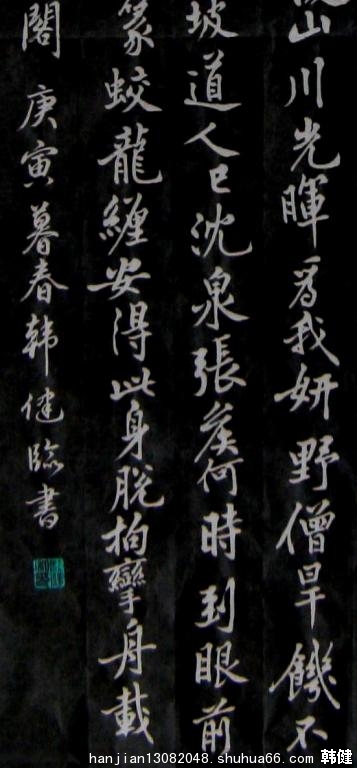 山川光暉為我妍野僧旱饑不
坡道人已沈泉張侯何時到眼前
篆蛟龍纏安得此身脫拘攣舟載
閣 庚寅暮春韩健臨書
hanjian13082048.shuhua66.com 韩健